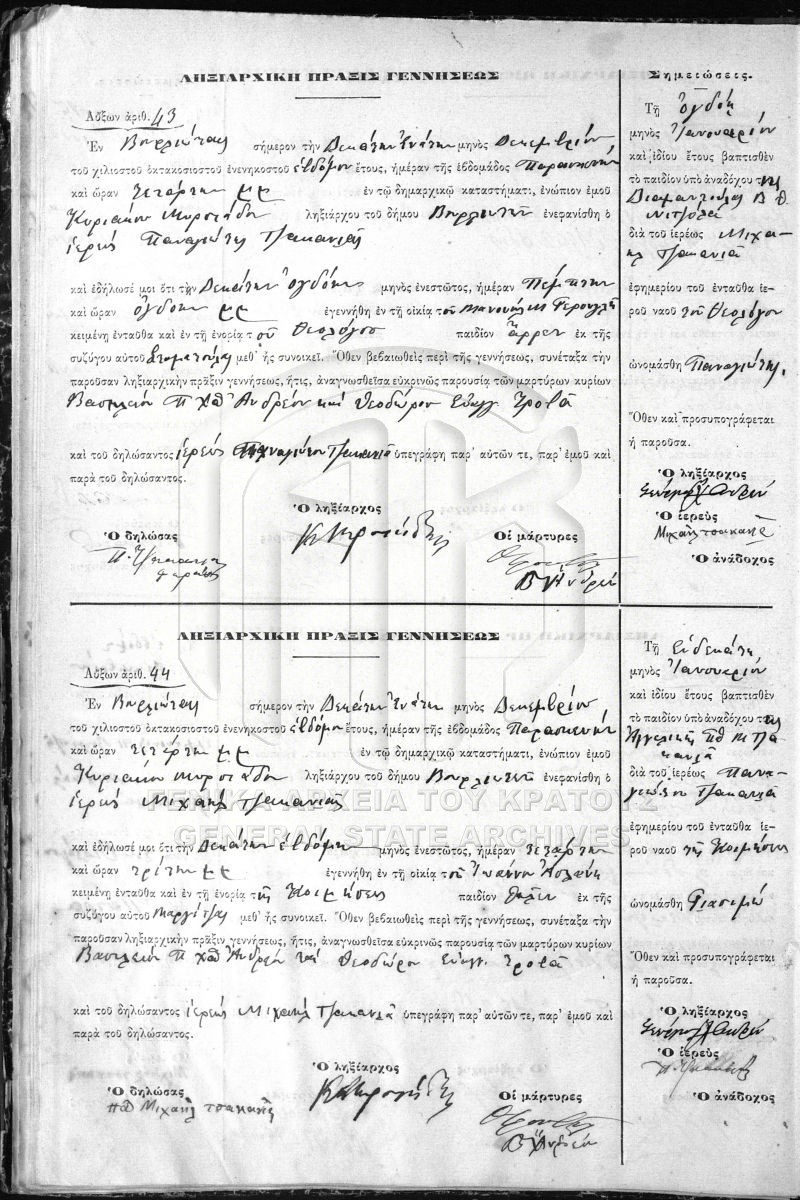 ΛΗΞΙΑΡΧΙΚΗ ΠΡΑΞΙΣ ΓΕΝΝΗΣΕΩΣ
Αὔξων ἀριθ. 43
Ἐν Βουρλιώταις σήμερον τὴν Δεκάτην Ἐνάτην μηνὸς Δεκεμβρίου
τοῦ χιλιοστοῦ ὀκτακοσιοστοῦ ἐνενηκοστοῦ ἑβδόμου ἔτους, ἡμέραν τῆς ἑβδομάδος Παρασκευὴν
καὶ ὥραν τετάρτην μμ ἐν τῷ δημαρχικῷ καταστήματι, ἐνώπιον ἐμοῦ
Κυριακοῦ ληξιάρχου τοῦ δήμου ἐνεφανίσθη ὁ
ἱερεὺς Παναγιώτης Τζακανιᾶς
καὶ ἐδήλωσέ μοι ὅτι τὴν Δεκάτην Ὀγδόην μηνὸς ἐνεστῶτος, ἡμέραν Πέμπτην
καὶ ὥραν ὀγδόην μμ ἐγεννήθη ἐν τῇ οἰκίᾳ τοῦ Μανουὴλ
κειμένῃ ἐνταῦθα καὶ ἐν τῇ ἐνορίᾳ τοῦ Θεολόγου παιδίον ἄρρεν ἐκ τῆς
συζύγου αὐτοῦ Σταματούλας μεθ' ἧς συνοικεῖ. Ὅθεν βεβαιωθεὶς περὶ τῆς γεννήσεως, συνέταξα τὴν
παροῦσαν ληξιαρχικὴν πρᾶξιν γεννήσεως, ἥτις, ἀναγνωσθεῖσα εὐκρινῶς παρουσίᾳ τῶν μαρτύρων κυρίων
Βασιλείου Π Χ" Ἀνδρέου καὶ Θεοδώρου Εὐαγγ.
καὶ τοῦ δηλώσαντος ἱερεὺς Παναγιώτου ὑπεγράφη παρ' αὐτῶν τε, παρ' ἐμοῦ καὶ
παρὰ τοῦ δηλώσαντος.
Ὁ ληξίαρχος
Ὁ δηλώσας
Οἱ μάρτυρες
Σημειώσεις.
Τῇ Ὀγδόῃ
μηνὸς Ἰανουαρίου
καὶ ἰδίου ἔτους βαπτισθὲν
τὸ παιδίον ὑπὸ ἀναδόχου της
Διαμαντούλας Β Θ
διὰ τοῦ ἱερέως Μιχα-
ὴλ Τζακανιᾶ
ἐφημερίου τοῦ ἐνταῦθα ἱε-
ροῦ ναοῦ τοῦ Θεολόγου
ὠνομάσθη Παναγιώτης.
Ὅθεν καὶ προσυπογράφεται
ἡ παροῦσα.
Ὁ ληξίαρχος
Ὁ ἱερεὺς
Μιχαὴλ τσακανᾶ
Ὁ ἀνάδοχος
ΛΗΞΙΑΡΧΙΚΗ ΠΡΑΞΙΣ ΓΕΝΝΗΣΕΩΣ
Αὔξων ἀριθ. 44
Ἐν Βουρλιώταις σήμερον τὴν Δεκάτην Ἐνάτην μηνὸς Δεκεμβρίου
τοῦ χιλιοστοῦ ὀκτακοσιοστοῦ ἐνενηκοστοῦ ἑβδόμου ἔτους, ἡμέραν τῆς ἑβδομάδος Παρασκευὴν
καὶ ὥραν τετάρτην μμ ἐν τῷ δημαρχικῷ καταστήματι, ἐνώπιον ἐμοῦ
Κυριακοῦ ληξιάρχου τοῦ δήμου ἐνεφανίσθη ὁ
ἱερεὺς Μιχαὴλ Τζακανιᾶς
καὶ ἐδήλωσέ μοι ὅτι τὴν Δεκάτην ἑβδόμην μηνὸς ἐνεστῶτος, ἡμέραν τετάρτην
καὶ ὥραν τρίτην μμ ἐγεννήθη ἐν τῇ οἰκίᾳ τοῦ Ἰωάννου
κειμένῃ ἐνταῦθα καὶ ἐν τῇ ἐνορίᾳ τῆς Κοιμήσεως παιδίον θῆλυ ἐκ τῆς
συζύγου αὐτοῦ Μαργίτζας μεθ' ἧς συνοικεῖ. Ὅθεν βεβαιωθεὶς περὶ τῆς γεννήσεως, συνέταξα τὴν
παροῦσαν ληξιαρχικὴν πρᾶξιν γεννήσεως, ἥτις, ἀναγνωσθεῖσα εὐκρινῶς παρουσίᾳ τῶν μαρτύρων κυρίων
Βασιλείου Π Χ" Ἀνδρέου καὶ Θεοδώρου Εὐαγγ.
καὶ τοῦ δηλώσαντος ἱερεὺς Μιχαὴλ ὑπεγράφη παρ' αὐτῶν τε, παρ' ἐμοῦ καὶ
παρὰ τοῦ δηλώσαντος.
Ὁ ληξίαρχος
Ὁ δηλώσας
Οἱ μάρτυρες
Μιχαὴλ τσακανᾶς
Τῇ Ἑνδεκάτῃ
μηνὸς Ἰανουαρίου
καὶ ἰδίου ἔτους βαπτισθὲν
τὸ παιδίον ὑπὸ ἀναδόχου της
Ἀγγελικῆς
διὰ τοῦ ἱερέως Πανα-
γιώτου Τζακανιᾶ
ἐφημερίου τοῦ ἐνταῦθα ἱε-
ροῦ ναοῦ τῆς Κοιμήσεως
ὠνομάσθη Γιασεμὼ
Ὅθεν καὶ προσυπογράφεται
ἡ παροῦσα.
Ὁ ληξίαρχος
Ὁ ἱερεὺς
Ὁ ἀνάδοχος
ΓΕΝΙΚΑ ΑΡΧΕΙΑ ΤΟΥ ΚΡΑΤΟΥΣ
GENERAL STATE ARCHIVES